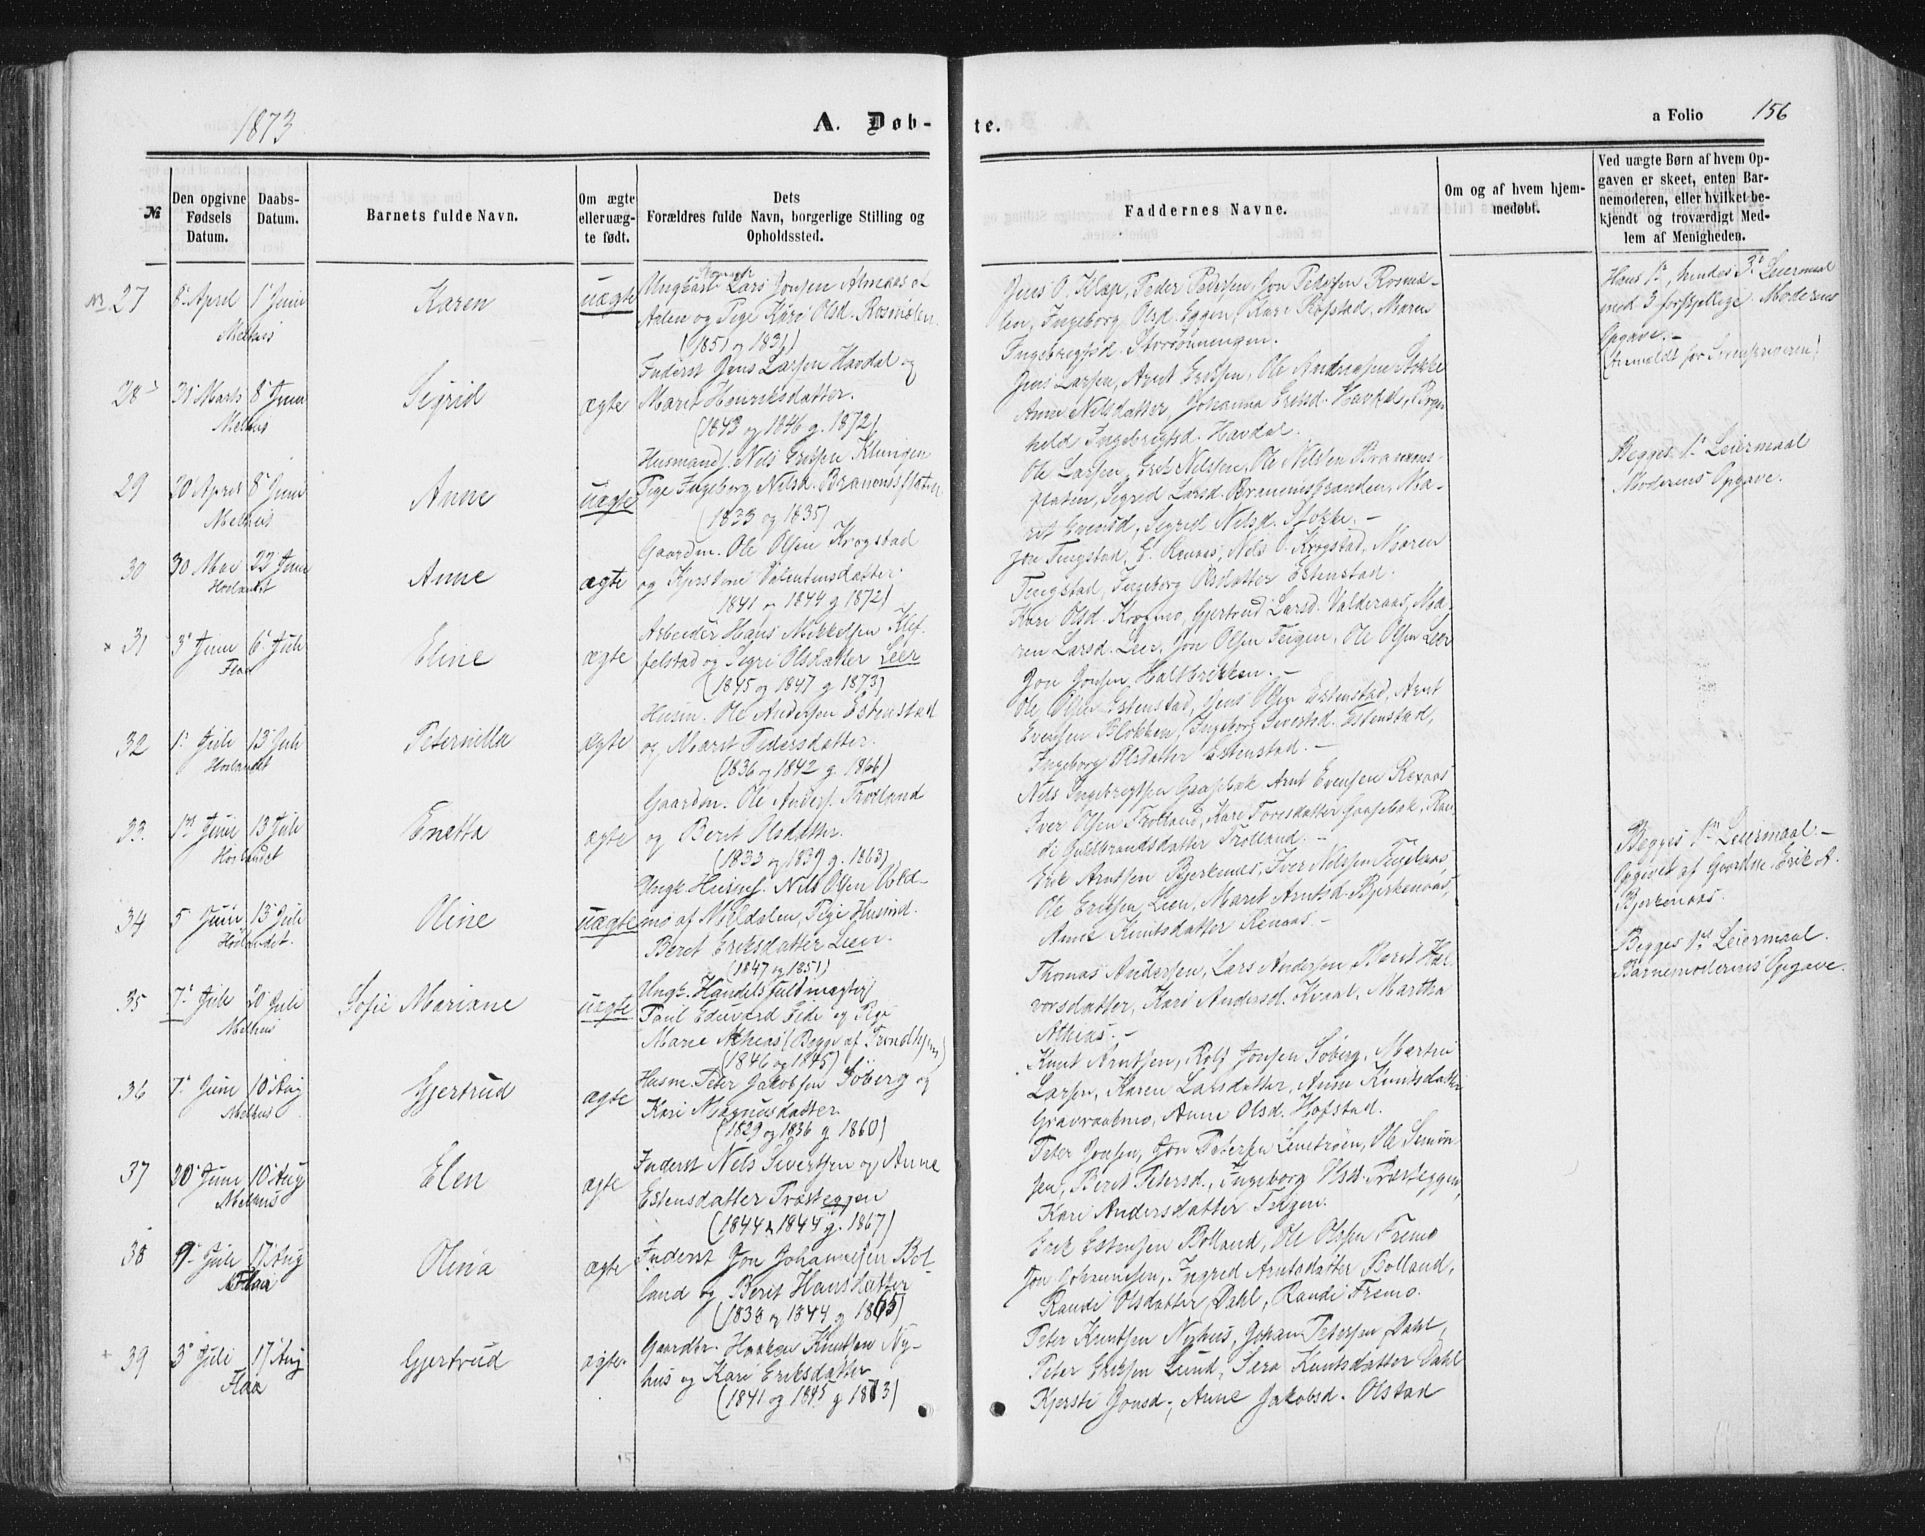 1873
A. Døb-
te.
a Folio 156
№
Den opgivne Fødsels Datum.
Daabs-Datum.
Barnets fulde Navn.
Om ægte eller uæg-te født.
Dets
Forældres fulde Navn, borgerlige Stilling og
Opholdssted.
Faddernes Navne.
Om og af hvem hjem-
medøbt.
Ved uægte Børn af hvem Op-
gaven er skeet, enten Bar-
nemoderen, eller hvilket be-
kjendt og troværdigt Med-
lem af Menigheden.
No 27
8 April
1 Juni
Melhus
Karen
uægte
Ungkarl Lars Jonsen Almaas af
Aalen og Pige Kari Olsd. Rosmælen
(1851 og 1831)
Jens O. Klæp, Peder Pedersen, Jon Pedersen Rosmæ-
len, Ingeborg Olsd. Eggen, Kari Rofstad, Maren
Ingebrigtsd. Storrønningen.
Hans 1ste, hendes 3die Leiermaal
med 3 forskjellige. Moderens
Opgave.-
28
31 Marts
8 Juni
Melhus
Sigrid
ægte
Inderst Jens Larsen Havdal og
Maret Henriksdatter.
(1843 og 1846 g. 1872)
Jens Larsen, Arnt Eriksen, Ole Andersen Stokke
Anne Nilsdatter, Johanna Eriksd. Havdal, Borg-
hild Ingebrigtsd. Havdal.
29
20 April
8 Juni
Melhus
Anne
uægte
Husmands. Nils Eriksen Klungen
Pige Ingeborg Nilsd. Bramensflaten
(1833 og 1835)
Ole Larsen, Erik Nilsen, Ole Nilsen Bramens-
flaten, Sigrid Larsd. Bramensstranden, Ma-
rit Evensd, Sigrid Nilsd. Stokke.-
Begges 1ste Leiermaal
Moderens Opgave.
30
30 Mai
22 Juni
Horlandet
Anne
ægte
Gaardm. Ole Olsen Krogstad
og Kjerstine Valentinsdatter.
(1841 og 1844 g 1872)
Jon Tingstad, E. Renaas, Nils O. Krogstad, Maren
Tingstad, Ingeborg Olsdatter Estenstad.
31
3 Juni
6 Juli
Flaa
Eline
ægte
Arbeider Hans Mikkelsen Kjef-
felstad og Sigri Olsdatter Leer
(1845 og 1847 g 1873)
Kari Olsd. Krogmo, Gjertrud Larsd. Valderaas, Ma-
ren Larsd. Leer, Jon Olsen Teigen, Ole Olsen Leer
Jon Jonsen Haltbrekken.-
32
1 Juli
13 Juli
Horlandet
Peternilla
ægte
Husm. Ole Andersen Estenstad
og Marit Pedersdatter.
(1836 og 1842 g. 1866)
Ole Olsen Estenstad, Jens Olsen Estenstad, Arnt
Evensen Blokken, Ingeborg Sivertsd. Estenstad,
Ingeborg Olsdatter Estenstad.-
33.
1ste Juni
13 Juli
Horlandet
Enetta
ægte
Gaardm. Ole Anders. Trotland
og Berit Olsdatter.
(1833 og 1839 g. 1863)
Nils Ingebrigtsen Gaasbak, Arnt Evensen Rexaas
Iver Olsen Trotland, Kari Toresdatter Gaasbak, Ran-
di Gulbrandsdatter Trotland.-
34
5 Juni
13 Juli
Horlandet.
Oline
uægte
Ungk. Husms. Nils Olsen Vold-
mo af Meldalen, Pige Husmd.
Beret Eriksdatter Lien.
(1847 og 1851)
Erik Arntsen Bjerkenes, Iver Nilssen Tingelaas
Ole Eriksen Lien, Maret Arntsd. Bjerkenaas,
Anne Knutsdatter Renaas.-
Begges 1ste Leiermaal.-
Opgivet af Gaardm. Erik A.
Bjerkenaas.
35
7 Juli
20 Juli
Melhus
Sofie Mariane
uægte
Ungk. Handelsfuldmægtig
Paul Edevard Eide og Pige
Marie Athias (Begge af Trondhjem)
(1846 og 1845)
Thomas Andersen, Lars Andersen, Marit Hal-
vorsdatter, Kari Andersd. Kvaal, Martha
Athias.-
Begges 1ste Leiermaal.
Barnemoderens Opgave.
36
7 Juni
10 Aug
Melhus
Gjertrud
ægte
Husm. Peter Jakobsen Søberg og
Kari Magnusdatter
(1829 og 1836 g 1860)
Knut Arntsen, Rolf Jonsen Søberg, Martin
Larsen, Karen Larsdatter, Anne Knutsdatter
Gravraakmo, Anne Olsd. Hofstad.
37
20 Juni
10 Aug
Melhus
Elen
ægte
Inderst Nels Sivertsen og Anne
Estensdatter Præsteggen
(1844 & 1844 g. 1867)
Peter Jonsen, Jon Petersen Lenstrøen, Ole Simon-
sen, Berit Petersd., Ingeborg Olsd. Præsteggen
Kari Andersdatter Teigen.
38
9 Juli
17 Aug
Flaa
Olina
ægte
Inderst Jon Johannesen Bol-
land og Berit Hansdatter
(1838 og 1844 g 1865)
Erik Estensen Bolland, Ole Olssen Fremo
Jon Johannesen, Ingrid Arntsdatter Bolland,
Randi Olsdatter Dahl, Randi Fremo.
39
3 Juli
17 Aug
Flaa
Gjertrud
ægte.
Gaardbr. Haaken Knutsen Ny-
hus og Kari Eriksdatter
(1841 og 1845 g 1873)
Peter Knutsen Nyhus, Johan Petersen Dahl,
Peter Eriksen Lund, Sara Knutsdatter Dahl
Kjersti Jonsd., Anne Jakobsd. Olstad